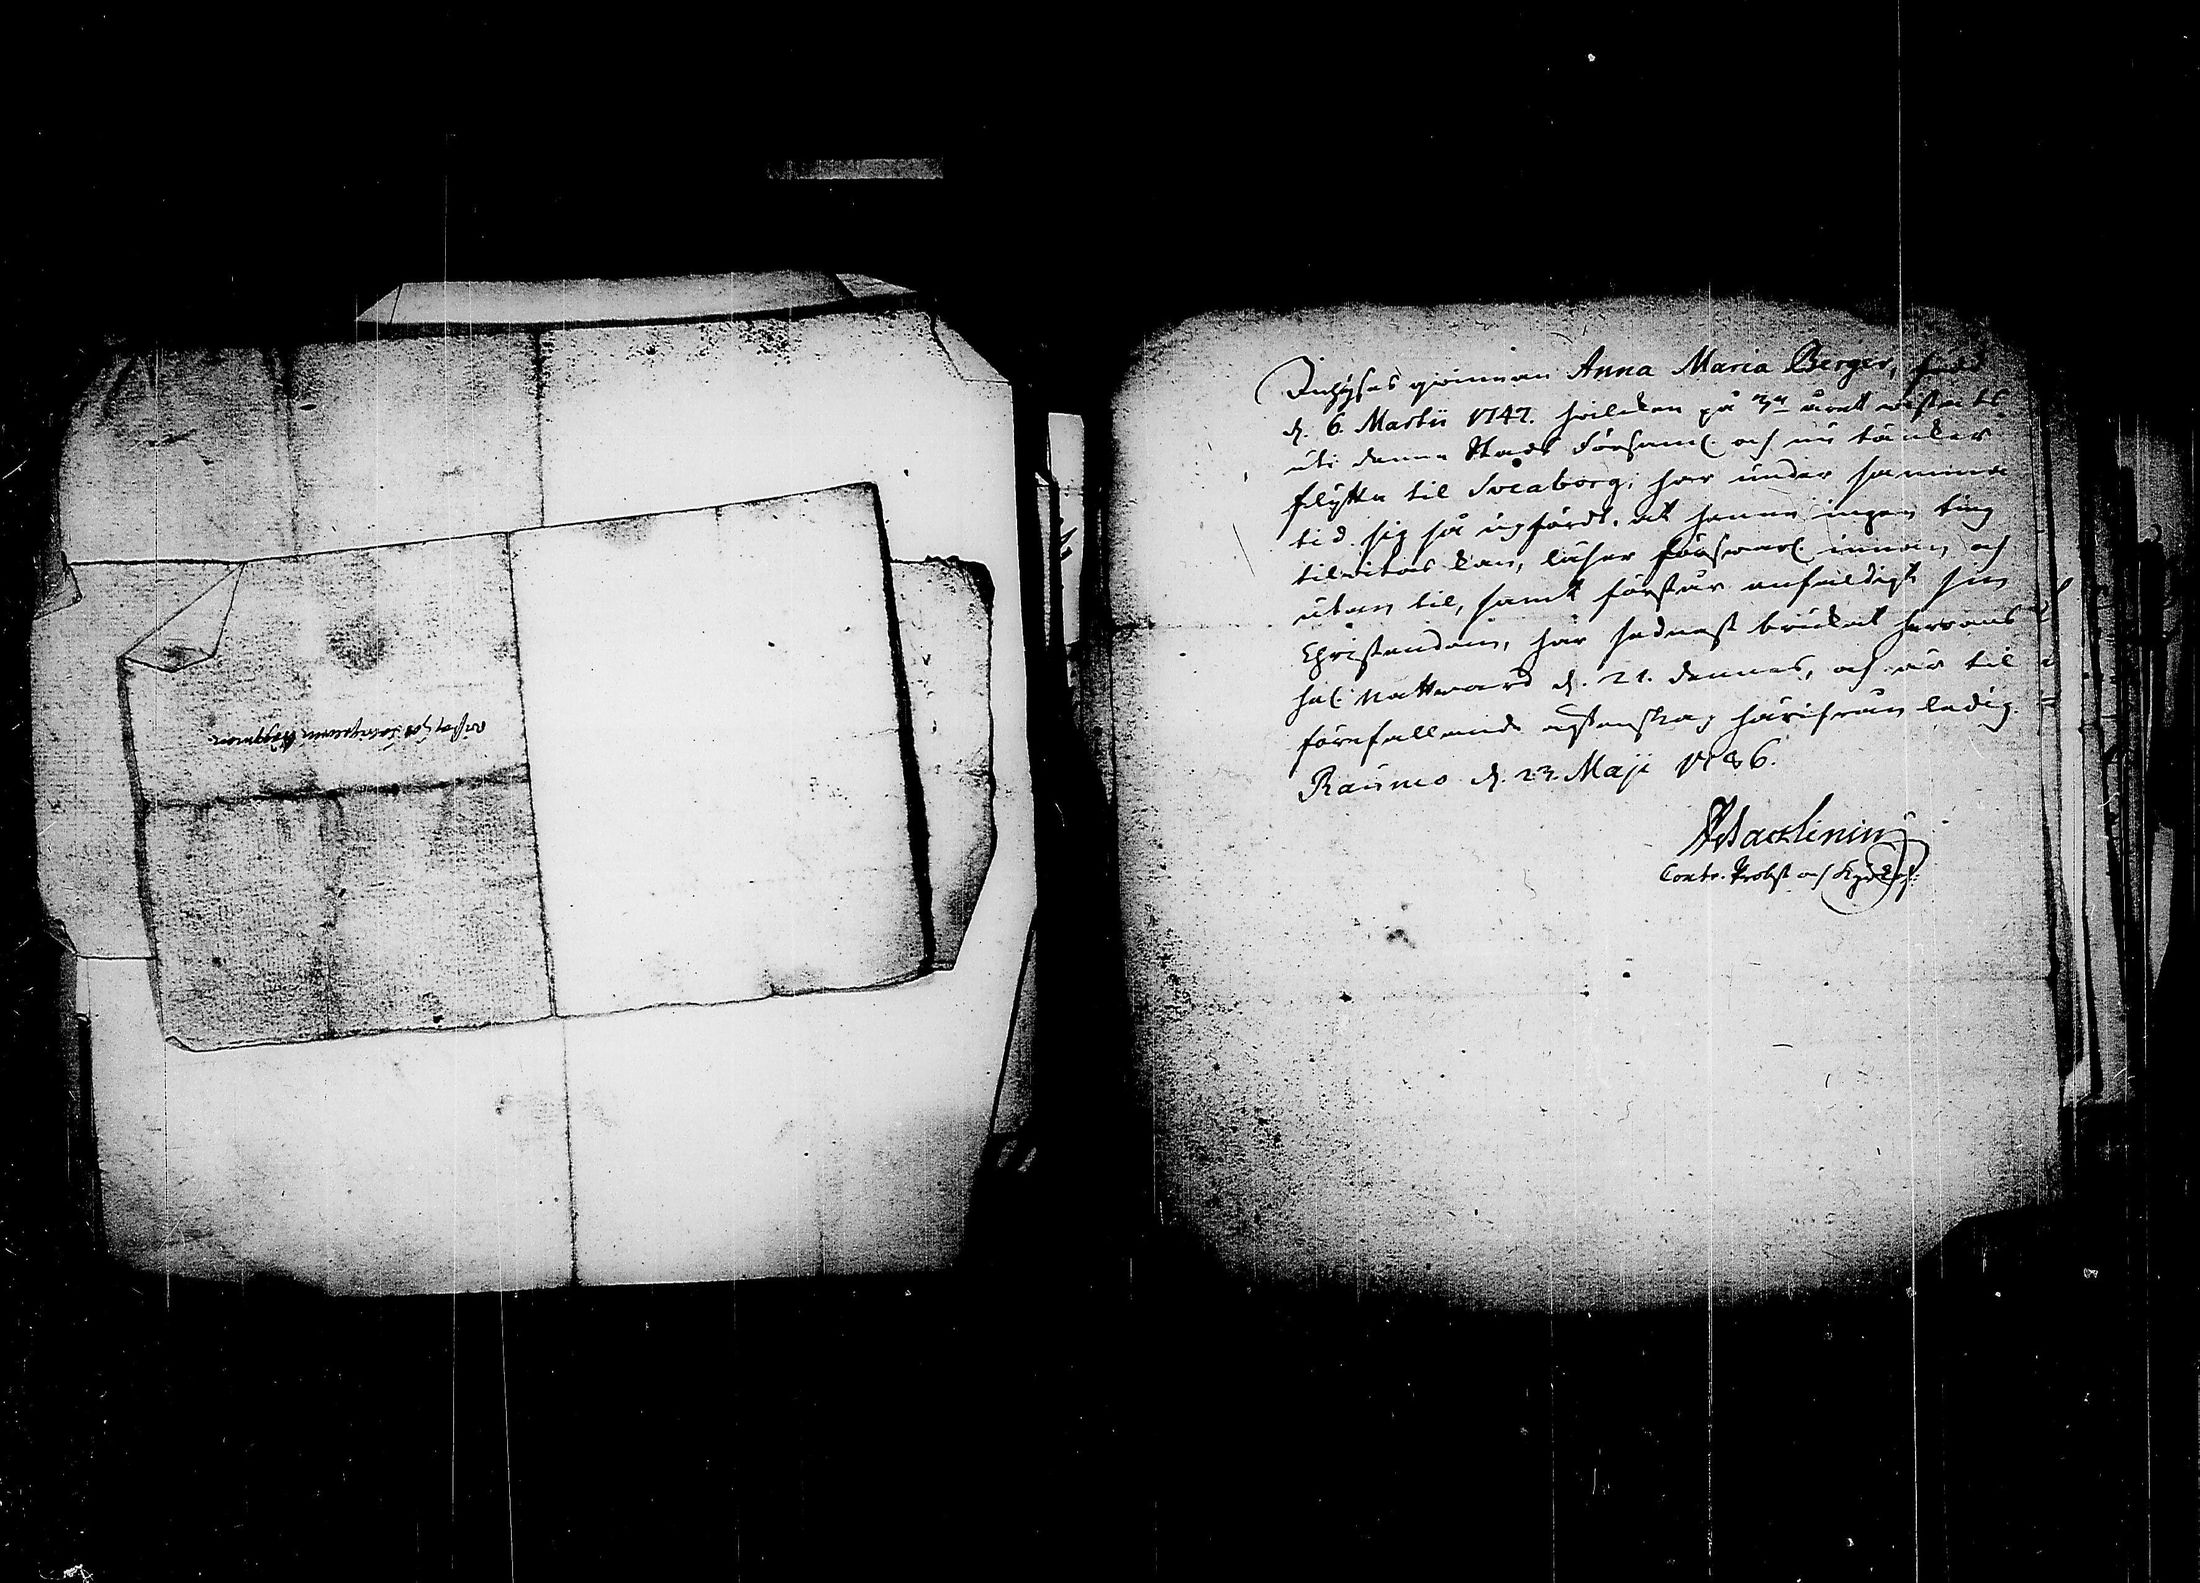 Inhyses qvinnan Anna Maria Berger, född
d. 6. Martii 1747. hvilcken på 3die året vistats
uti denna Stads Församl. och nu täncker
flytta til Sveaborg, har under samma
tid sig så upfördt, at henne ingen ting
tilvitas kan, läser försvarl. innan och
utan til, samt förstår enfaldigt sin
Christendom, har sednast brukat Herrans
hel. Nattvard d. 21. dennes, och är til
förefallande ägtenskap härifrån ledig.
Raumo d. 23. Maji 1786.
Contr. Probst och Kyrckoh.